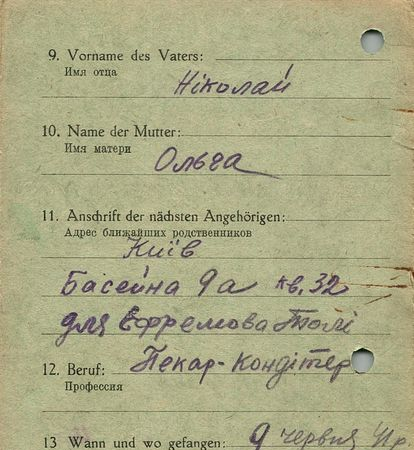 9. Vorname des Vaters:
Имя отца
Ніколай
10. Name der Mutter:
Имя матери
Ольга
11. Anschrift der nächsten Angehörigen:
Адрес ближайших родственников
Київ
Басейна 9а кв. 32
для Єфремова Толі
12. Beruf: Пекар-Кондітер
Профессия
13 Wann und wo gefangen: 9 червня